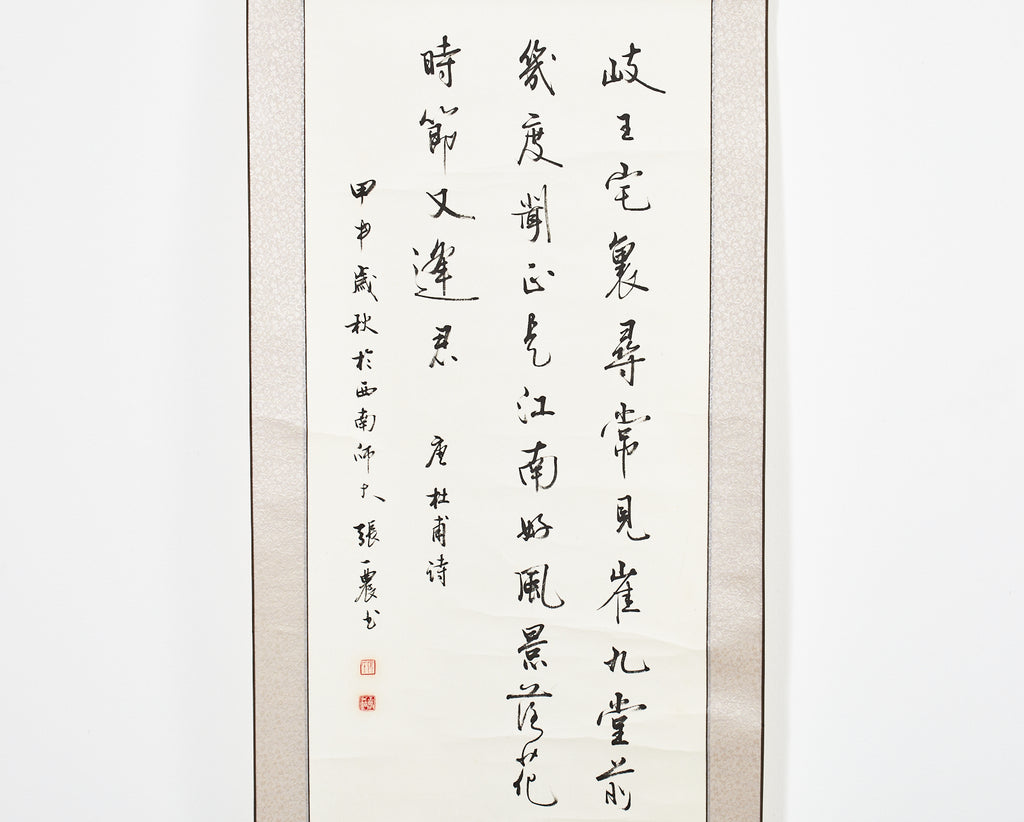 歧王宅裏尋常見崔九堂前
幾度聞正是江南好風景落花
時節又逢君 唐杜甫詩
甲申歲秋於西南師大張一農书